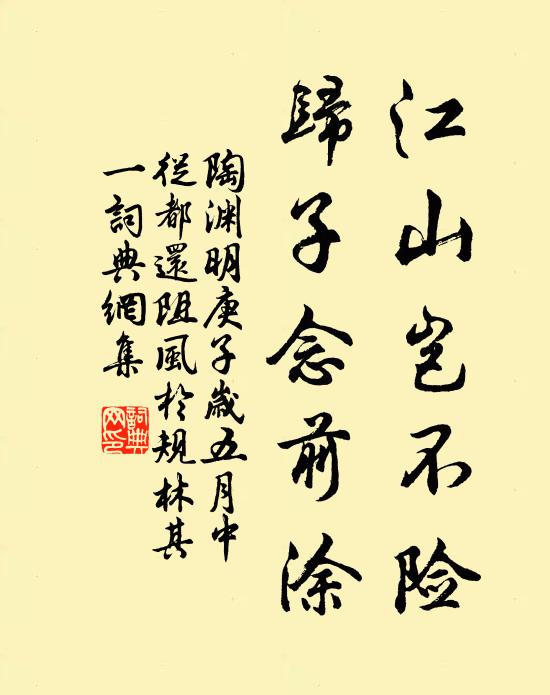 江山岂不险
歸子念前涂
陶渊明庚子歲五月中
從都還阻風於規林其
一詞典網集
詞典网印